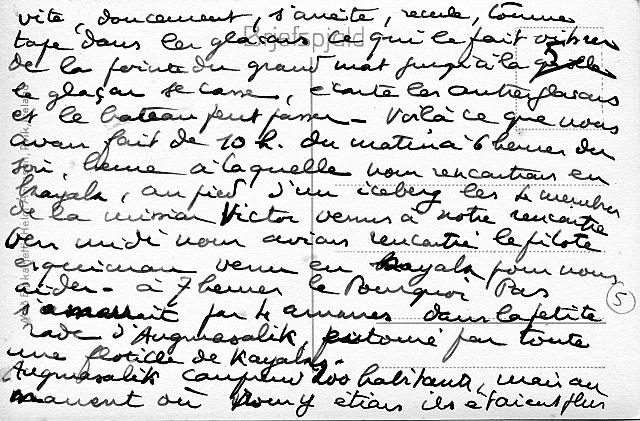 vite, doucement, s'arrête, recule, comme
tape dans les glaçons ce qui le fait vibrer
de la pointe du grand mat jusqu'à la quille
le glaçon se casse, écarte les autres glaçons
et le bateau peut passer - Voilà ce que nous
avons fait de 10 h. du matin à 6 heures du
soir, heure à laquelle nous rencontrons en
kayaks, au pied d'un iceberg les 4 membres
de la mission Victor venus à notre rencontre
Vers midi nous avions rencontré le pilote
esquimau venu en kayak pour nous
aider - à 7 heures le Pourquoi Pas
s'amarrait par 4 amarres dans la petite
rade d'Angmasalik, entouré par toute
une flotille de kayaks
Angmasalik comprend 200 habitants, mais au
moment où nous y étions ils étaient plus
Brjefspjald
5